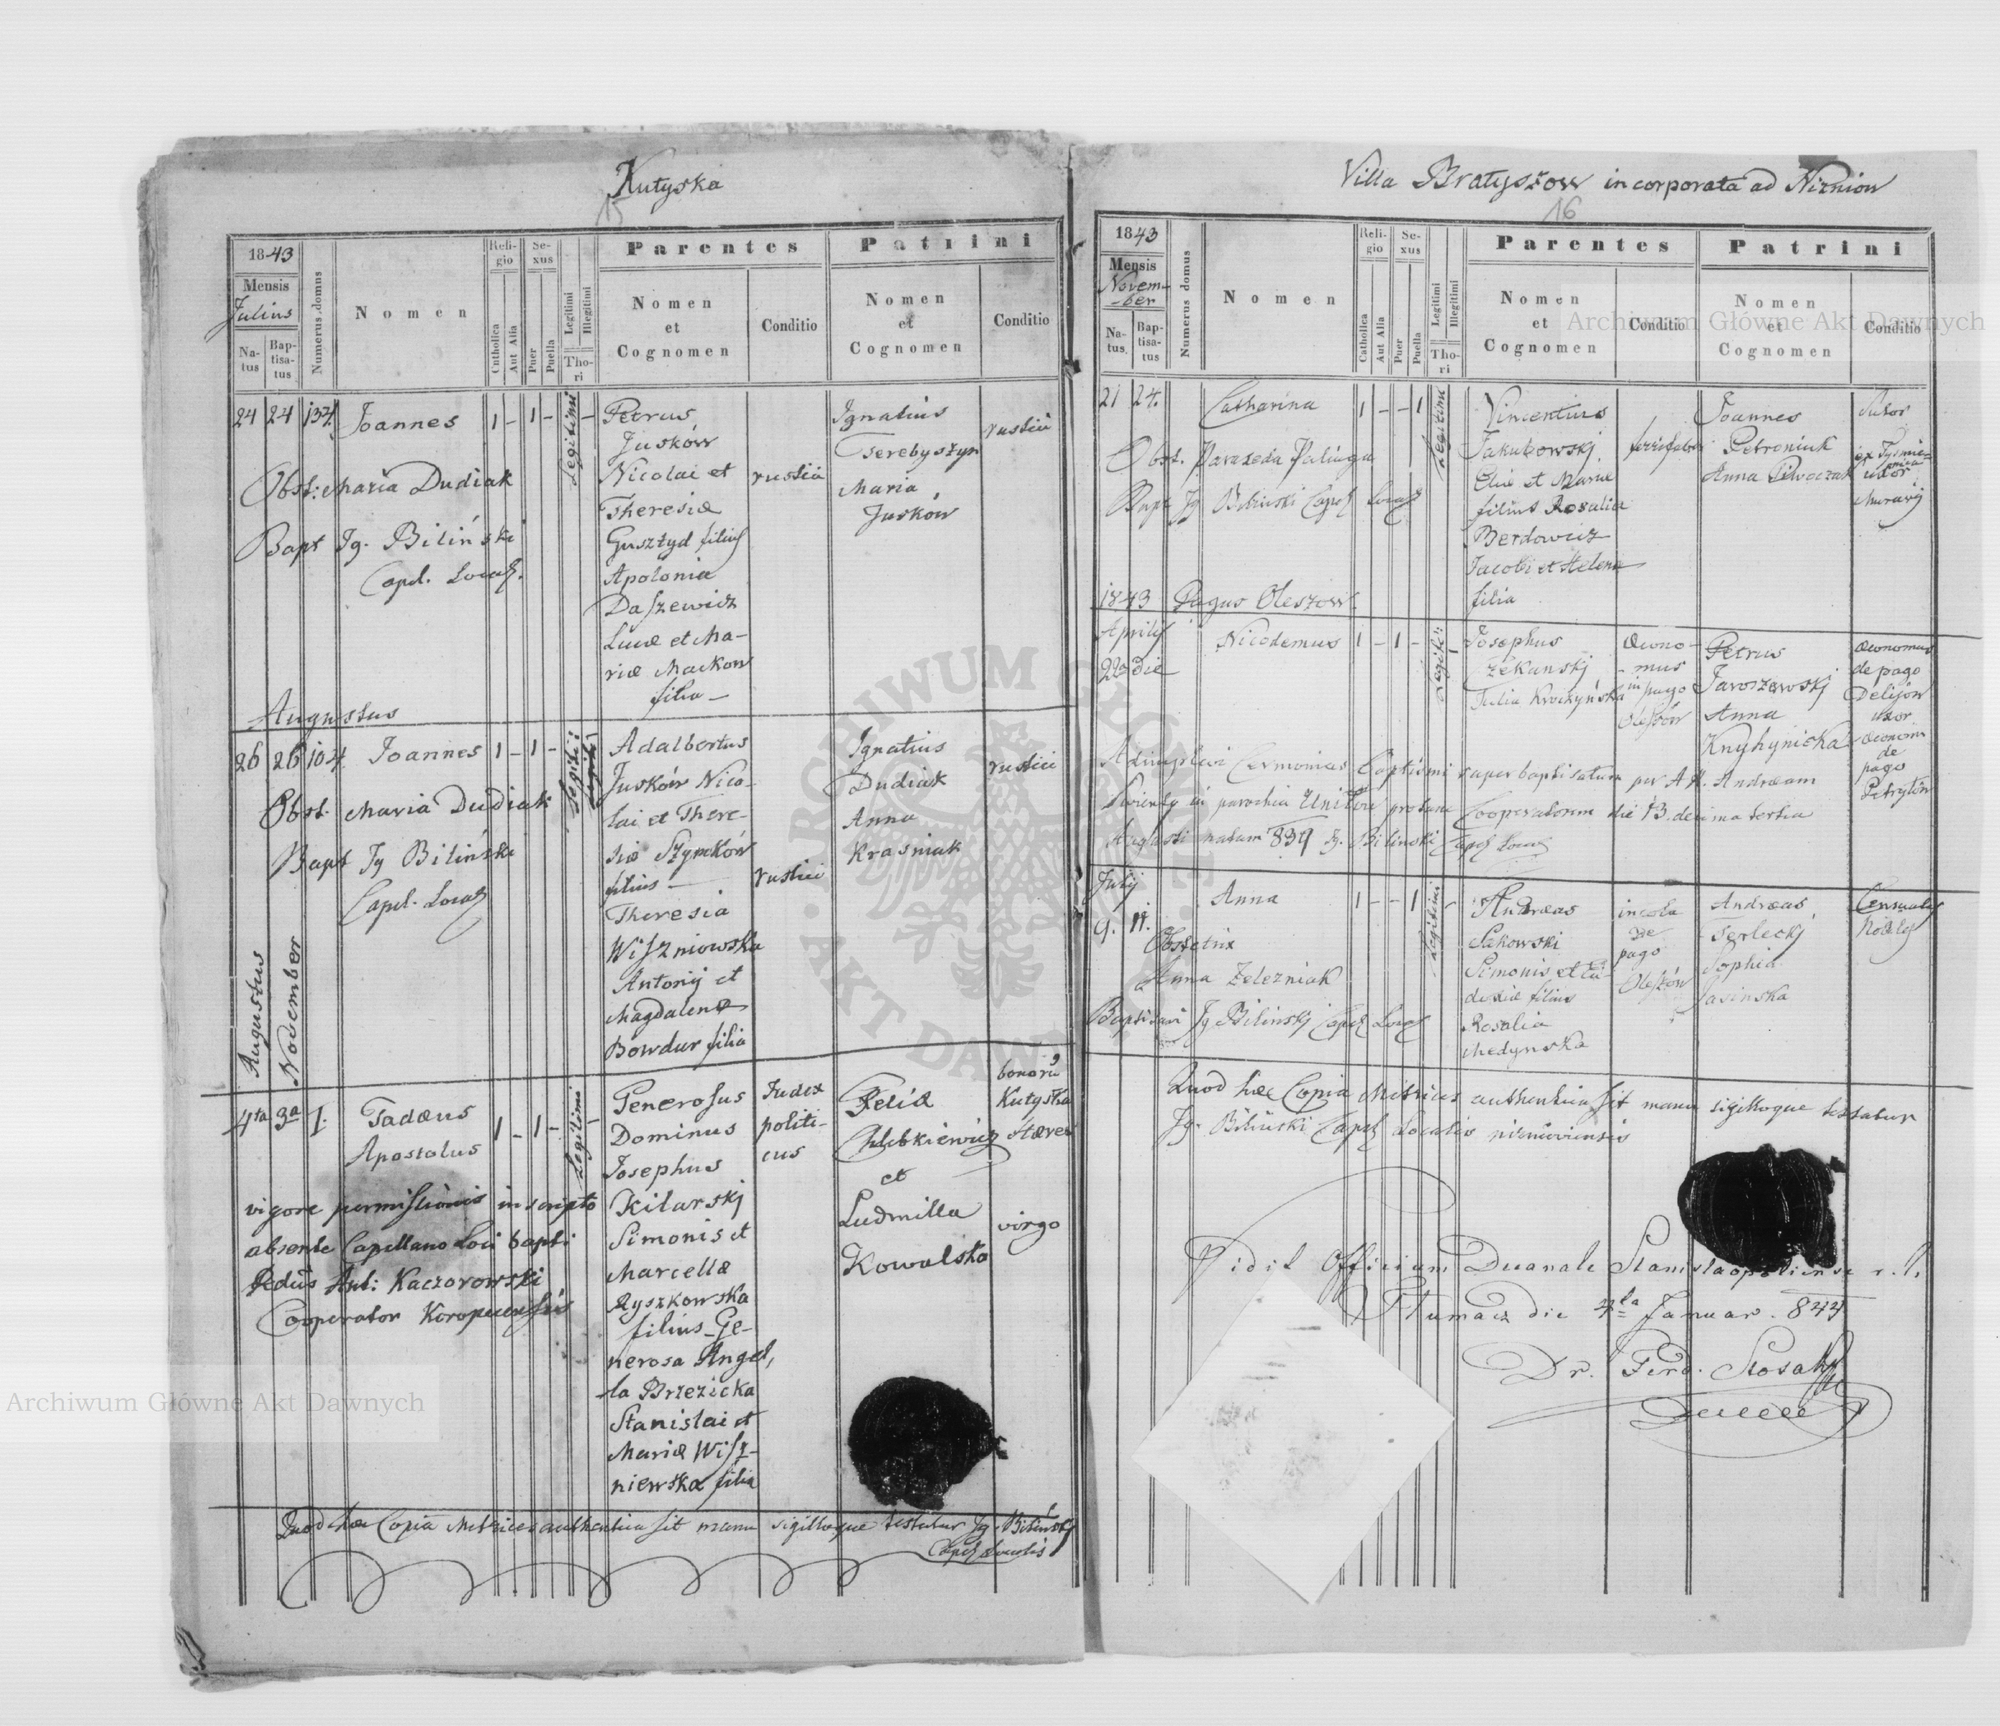 Kutyska
15
1843
Mensis
Julius
Natus
Baptisatus
Numerus domus
Nomen
Religio
Catholica
Aut Alia
Sexus
Puer
Puella
Legitimi
Illegitimi
Thori
Parentes
Nomen
et
Cognomen
Conditio
Patrini
Nomen
et
Cognomen
Conditio
24 24 137. Joannes 1 - 1 - Legitimi -
Obst: Maria Dudiak
Bapt Ig. Biliński
Capel. Local.
Petrus
Jusków
Nicolai et
Theresiæ
Gusztyd filius
Apolonia
Daszewicz
Lucæ et Ma-
riæ Mackow
filia -
rustici
Ignatius
Tserebyszyn
Maria
Jusków
rustici
Augustus
26 26 104 Joannes 1 - 1 -
Obst. Maria Dudiak
Bapt Ig Biliński
Capel. Local
Adalbertus
Jusków Nico-
lai et There-
siæ Szypków
filius -
Theresia
Wiszniowska
Antonij et
Magdalenæ
Bowdur filia
rustici
Ignatius
Dudiak
Anna
Krasniak
rustici
Augustus
November
4ta 3a 1. Tadæus
Apostolus
1 - 1 - Legitimi -
vigore permissionis in scripto
absente Capellano Loci bapti
Ant: Kaczorowski
Cooperator Koropecensis
Generosus
Dominus
Josephus
Kilarskj
Simonis et
Marcellæ
Ryszkowska
filius - Ge-
nerosa Angel,
la Brzezicka
Stanislai et
Mariæ Wisz-
niewska filia
Judex
politi-
cus
Felix
Chlebkiewicz
et
Ludmilla
Kowalska
bonorũ
Kutyska
virgo
Quod hæc Copia Metrices authentica sit manu sigilloque testatur Ig. Biliński
Capel Localis
Villa Bratyszow incorporata ad Nizniow
16
1843
Mensis
Novem-
-ber
Natus.
Baptisatus
Numerus domus
Nomen
Religio
Catholica
Aut Alia
Sexus
Puer
Puella
Legitimi
Illegitimi
Thori
Parentes
Nomen
et
Cognomen
Conditio
Patrini
Nomen
et
Cognomen
Conditio
21 24. Catharina 1 - - 1 Legitimi
Obst. Paraxeda Palinga
Bapt Ig Biliński Capel Local
Vincentius
Jakubowskj
Eliæ et Mariæ
filius Rosalia
Berdowicz
Jacobi et Helenæ
filia
Joannes
Petroniuk
Anna Piwoczak
Sutor
uxor
1843 Pagus Oleszow
Aprilis
22a die
Nicodemus 1 - 1 -
Josephus
Zekanskj
Julia Kroczyńska
œcono-
mus
in pago
Oleszów
Petrus
Jaroszewskj
Anna
Knyhynicka
œconomus
de pago
Delijow
uxor
œconomi
de
pago
Petryłów
Adimplevi Cermonias Baptismi super baptisatum per A. R. Andræam
Cooperatorem die 13. decima tertia
Augusti natum 839 Ig. Bilinski Capel Local
Julij
9. 11.
Anna 1 - - 1 Legitimi
Obstetrix
Anna Zelezniak
Baptisavi Ig Bilinskj Capel Local
Andreas
Sakowski
Simonis et Eu-
doxiæ filius
Rosalia
Medynska
incola
de
pago
Oleszów
Andreas
Terleckj
Sophia
Jasinska
Quod hæc Copia Metrices authentica sit manu sigilloque testatur
Ig. Biliński Capel Localis nizniovensis
Vidit Officium Decanale Stanislaopoliense r. l.
Tłumacz die 4ta Januar. 844
Dr. Ferd.
Archiwum Główne Akt Dawnych
Archiwum Główne Akt Dawnych
ARCHIWUM GŁÓWNE · AKT DAWNYCH ·